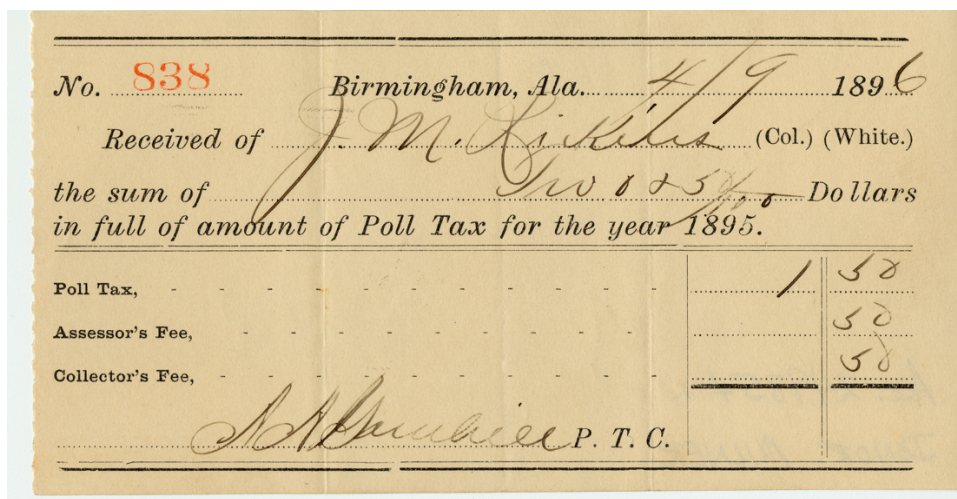 No. 838 Birmingham, Ala. 4/9 1896
Received of J. M. Ricketts (Col.) (White.)
the sum of Two & 50/100 Dollars
in full of amount of Poll Tax for the year 1895.
Poll Tax, - - - - - - - - - - - 1 50
Assessor's Fee, - - - - - - - - - - 50
Collector's Fee, - - - - - - - - - - 50
P. T. C.